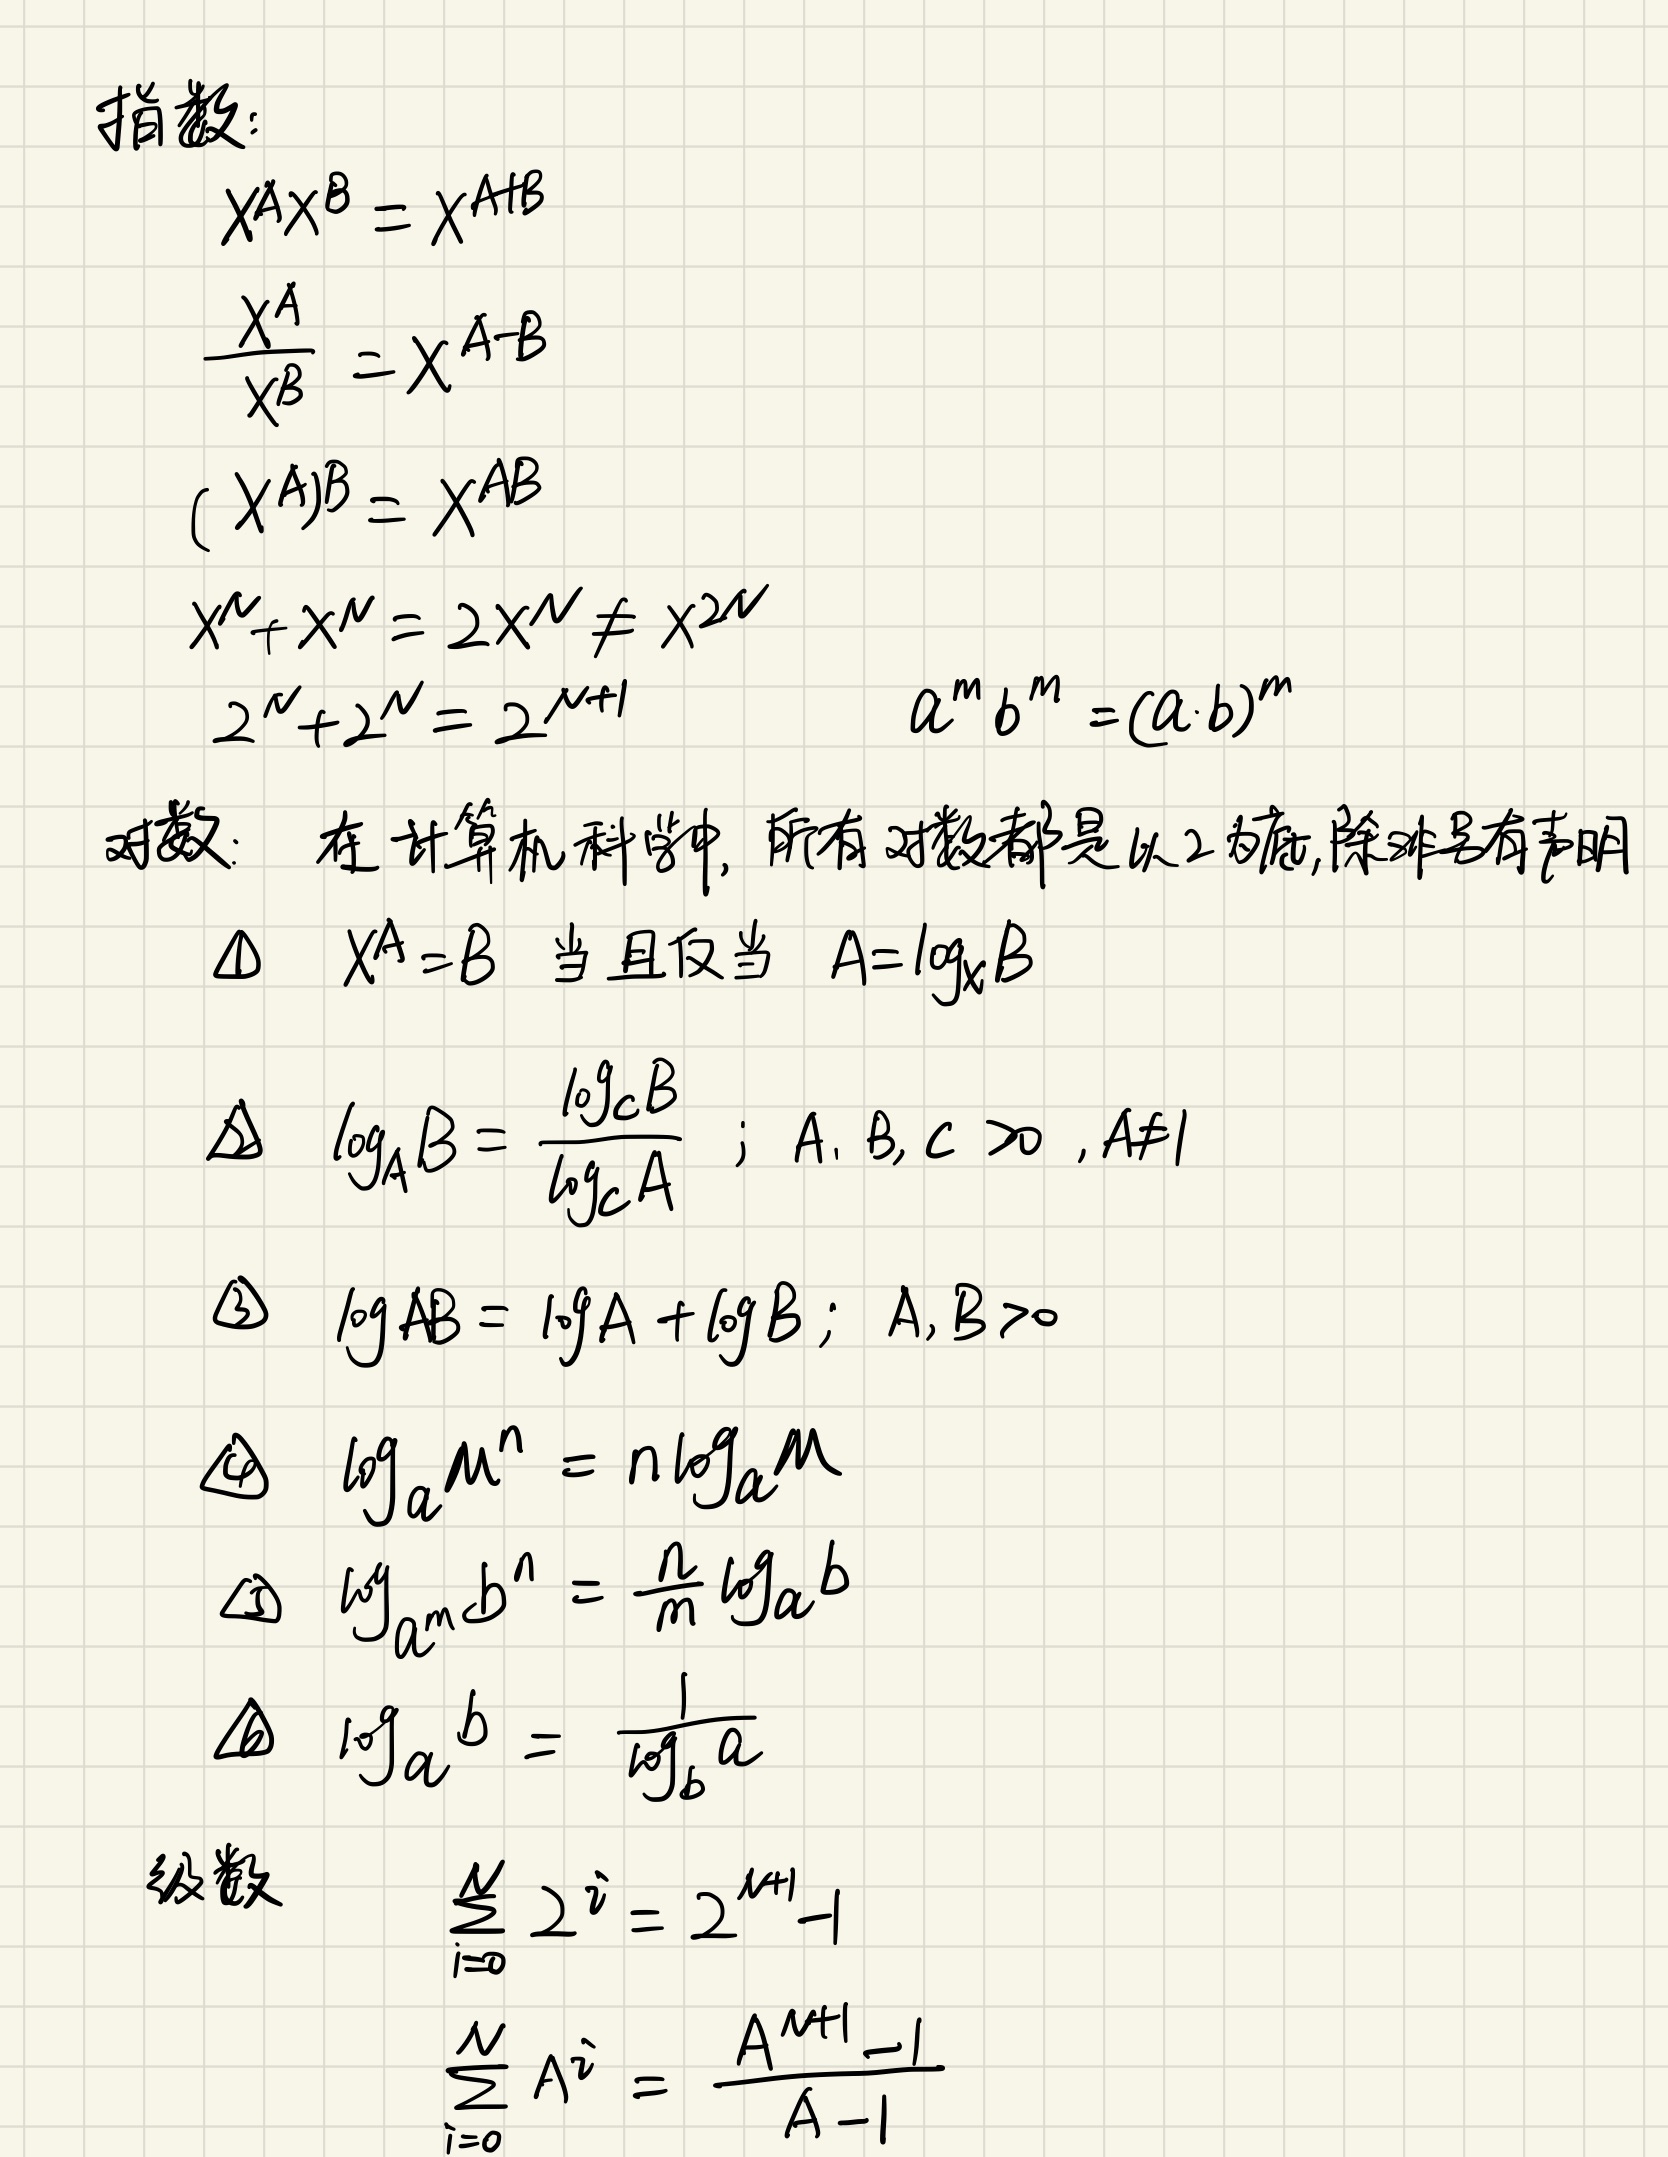 指数:
X^A X^B = X^{A+B}
\frac{X^A}{X^B} = X^{A-B}
(X^A)^B = X^{AB}
X^N + X^N = 2X^N ≠ X^{2N}
2^N + 2^N = 2^{N+1} a^m b^m = (a·b)^m
对数: 在计算机科学中, 所有对数都是以2为底, 除非另有声明
① X^A = B 当且仅当 A = log_X B
② log_A B = \frac{log_C B}{log_C A} ; A, B, C > 0, A ≠ 1
③ log AB = log A + log B; A, B > 0
④ log_a M^n = n log_a M
⑤ log_{a^m} b^n = \frac{n}{m} log_a b
⑥ log_a b = \frac{1}{log_b a}
级数 \sum_{i=0}^{N} 2^i = 2^{N+1} - 1
\sum_{i=0}^{N} A^i = \frac{A^{N+1} - 1}{A - 1}